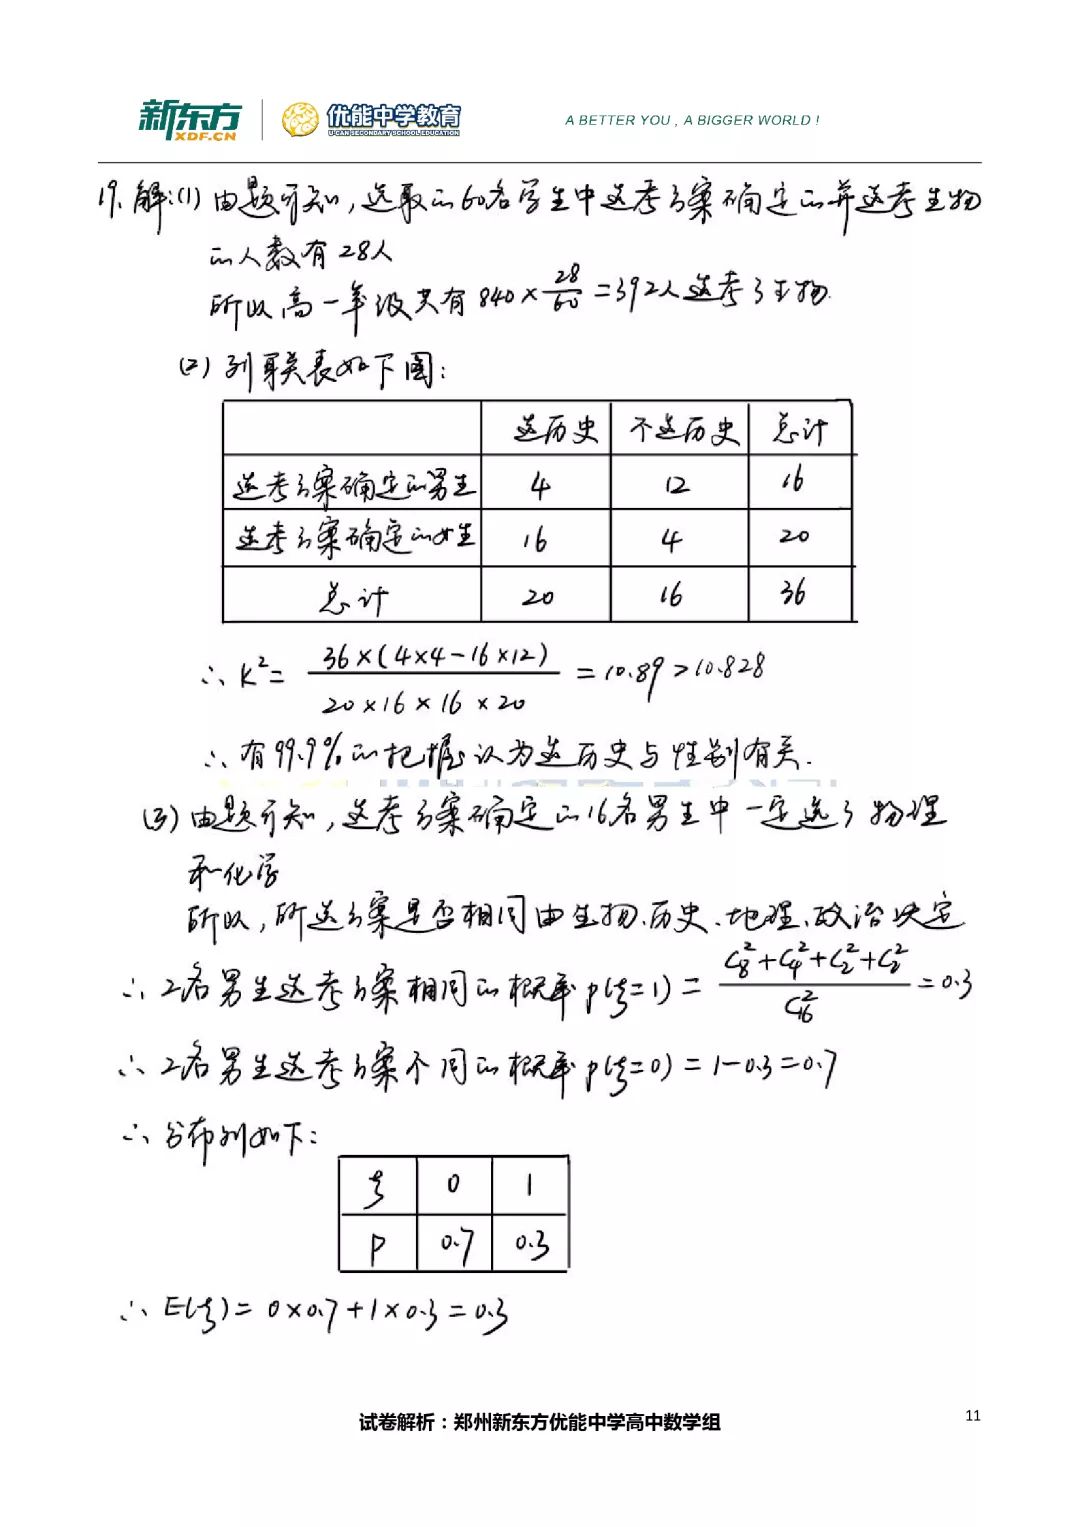 新东方
XDF.CN
优能中学教育
U-CAN SECONDARY SCHOOL EDUCATION
A BETTER YOU , A BIGGER WORLD !
19.解:(1) 由题可知,选取的60名学生中选考方案确定的并选考生物
的人数有28人
所以高一年级共有 840×28/60=392人选考了生物.
(2) 列联表如下图:
选历史 不选历史 总计
选考方案确定的男生 4 12 16
选考方案确定的女生 16 4 20
总计 20 16 36
∴ K²= 36×(4×4-16×12) / 20×16×16×20 =10.89>10.828
∴ 有99.9%的把握认为选历史与性别有关.
(3) 由题可知,选考方案确定的16名男生中一定选了物理
和化学
所以,所选方案是否相同由生物、历史、地理、政治决定
∴ 2名男生选考方案相同的概率 P(ξ=1) = (C₈²+C₄²+C₂²+C₂²)/C₁₆² =0.3
∴ 2名男生选考方案不同的概率 P(ξ=0) = 1-0.3=0.7
∴ 分布列如下:
ξ 0 1
P 0.7 0.3
∴ E(ξ)= 0×0.7+1×0.3=0.3
试卷解析:郑州新东方优能中学高中数学组
11